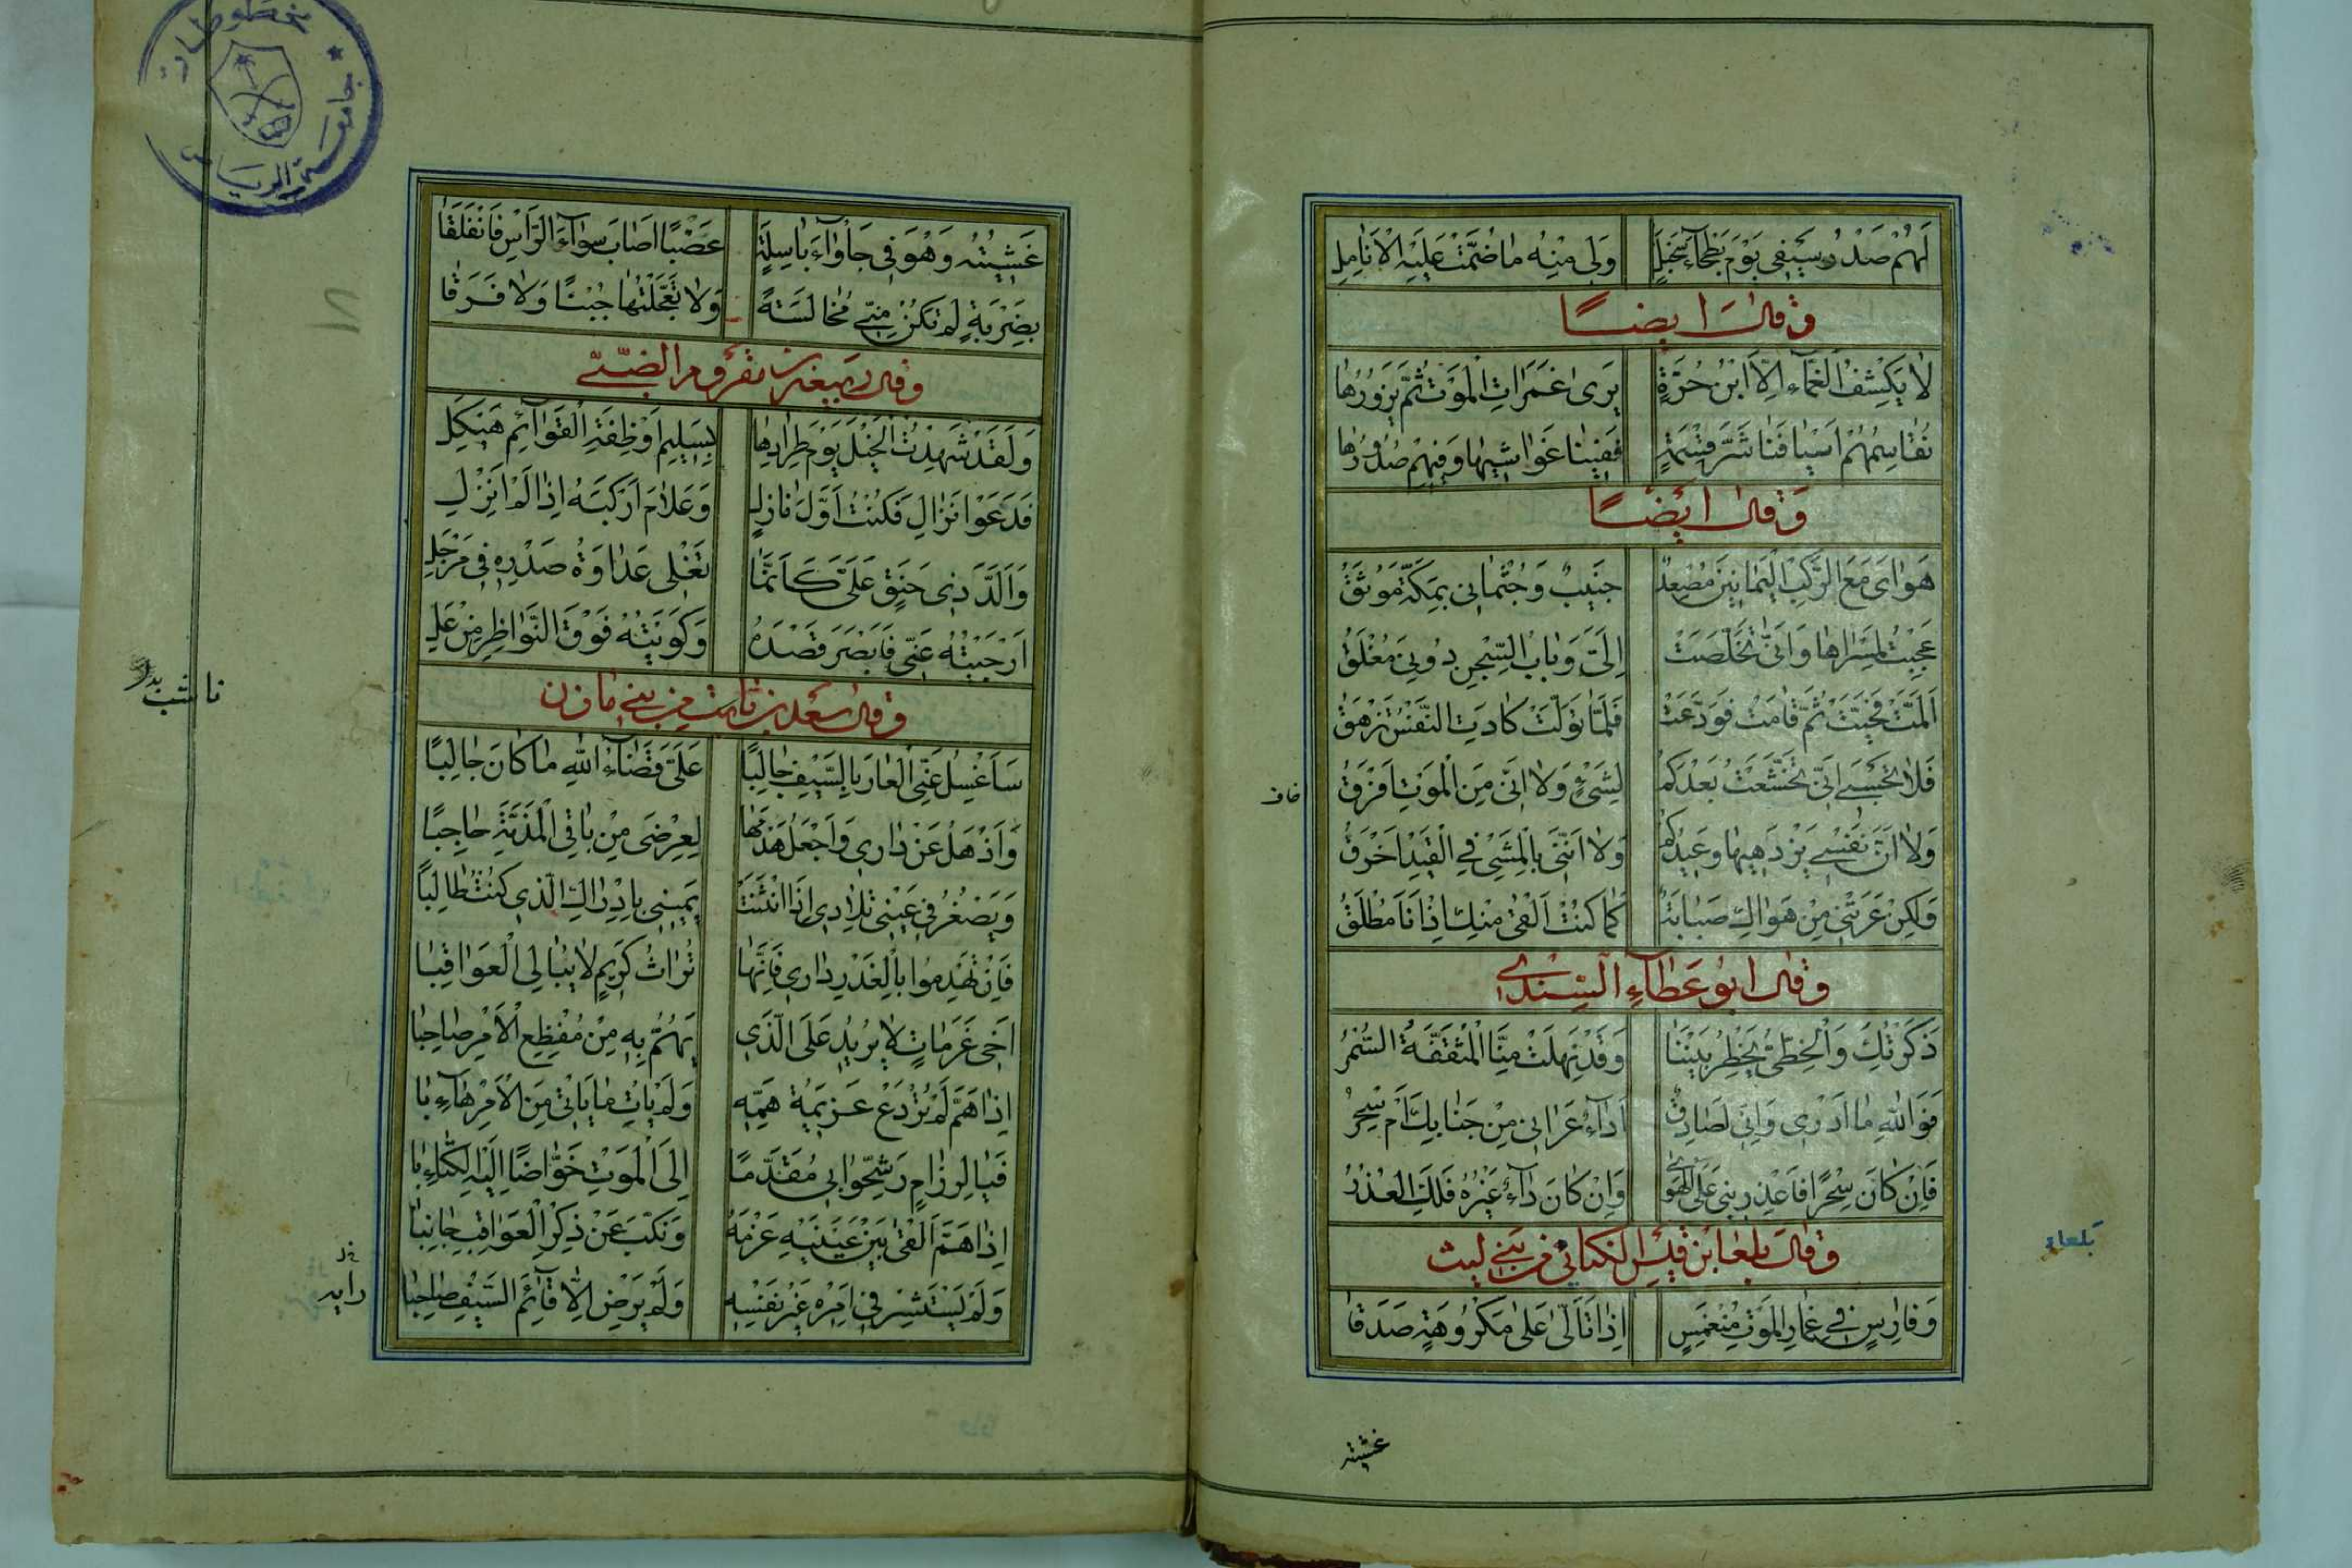 لَهُمْ صَدْرُ سَيْفِي يَوْمَ بَطْحَاءِ سَحْبَلٍ وَلِي مِنْهُ مَا ضُمَّتْ عَلَيْهِ الْاَنَامِلِ
وَقَالَ اَيضًا
لَا يَكْشِفُ الْغَمَّاءَ اِلَّا ابْنُ حُرَّةٍ يَرَى غَمَرَاتِ الْمَوْتِ ثُمَّ يَزُورُهَا
نُقَاسِمُهُمْ اَسْيَافَنَا شَرَّ قِسْمَةٍ فَفِينَا غَوَاشِيهَا وَفِيهِمْ صُدُورُهَا
وَقَالَ اَيْضًا
هَوَايَ مَعَ الرَّكْبِ الْيَمَانِينَ مُصْعِدٌ جَنِيبٌ وَجُثْمَانِي بِمَكَّةَ مُوثَقُ
عَجِبْتُ لِمَسْرَاهَا وَاَنَّى تَخَلَّصَتْ اِلَيَّ وَبَابُ السِّجْنِ دُونِيَ مُغْلَقُ
اَلَمَّتْ فَحَيَّتْ ثُمَّ قَامَتْ فَوَدَّعَتْ فَلَمَّا تَوَلَّتْ كَادَتِ النَّفْسُ تَزْهَقُ
فَلَا تَحْسَبِي اَنِّي تَخَشَّعْتُ بَعْدَكُمْ لِشَيْءٍ وَلَا اَنِّي مِنَ الْمَوْتِ اَفْرَقُ
وَلَا اَنَّ نَفْسِي يَزْدَهِيهَا وَعِيدُكُمْ وَلَا اَنَّنِي بِالْمَشْيِ فِي الْقَيْدِ اَخْرَقُ
وَلٰكِنْ عَرَتْنِي مِنْ هَوَاكِ صَبَابَةٌ كَمَا كُنْتُ اَلْقَى مِنْكِ اِذْ اَنَا مُطْلَقُ
وَقَالَ اَبُو عَطَاءِ السِّنْدِي
ذَكَرْتُكِ وَالْخَطِّيُّ يَخْطِرُ بَيْنَنَا وَقَدْ نَهِلَتْ مِنَّا الْمُثَقَّفَةُ السُّمْرُ
فَوَاللهِ مَا اَدْرِي وَاِنِّي لَصَادِقٌ اَدَاءٌ عَرَانِي مِنْ جَنَابِكِ اَمْ سِحْرُ
فَاِنْ كَانَ سِحْرًا فَاعْذِرِينِي عَلَى الْهَوَى وَاِنْ كَانَ دَاءً غَيْرَهُ فَلَكِ الْعُذْرُ
وَقَالَ بَلْعَا بْنُ قَيْسٍ الْكِنَانِي مِنْ بَنِي لَيث
بَلعاء
وَفَارِسٍ فِي غِمَارِ الْمَوْتِ مُنْغَمِسٍ اِذَا تَاَلَّى عَلَى مَكْرُوهَةٍ صَدَقَا
غشيته
مخطوطات
جامعة الرياض
٧١
غَشِيتُهُ وَهْوَ فِي جَأْوَاءَ بَاسِلَةٍ عَضْبًا اَصَابَ سَوَاءَ الرَّأْسِ فَانْفَلَقَا
بِضَرْبَةٍ لَمْ تَكُنْ مِنِّي مُخَالَسَةً وَلَا تَعَجَّلْتُهَا جُبْنًا وَلَا فَرَقَا
وقال ربيعة بن مقروم الضبّي
وَلَقَدْ شَهِدْتُ الْخَيْلَ يَوْمَ طِرَادِهَا بِسَلِيمِ اَوْظِفَةِ الْقَوَائِمِ هَيْكَلِ
فَدَعَوْا نَزَالِ فَكُنْتُ اَوَّلَ نَازِلٍ وَعَلَامَ اَرْكَبُهُ اِذَا لَمْ اَنْزِلِ
وَاَلَدَّ ذِي حَنَقٍ عَلَيَّ كَاَنَّمَا تَغْلِي عَدَاوَةُ صَدْرِهِ فِي مِرْجَلِ
اَرْجَيْتُهُ عَنِّي فَاَبْصَرَ قَصْدَهُ وَكَوَيْتُهُ فَوْقَ النَّوَاظِرِ مِنْ عَلِ
وقال سعد بن ناشب من بني مازن
ناشب
سَاَغْسِلُ عَنِّي الْعَارَ بِالسَّيْفِ جَالِبًا عَلَيَّ قَضَاءُ اللهِ مَا كَانَ جَالِبًا
وَاَذْهَلُ عَنْ دَارِي وَاَجْعَلُ هَدْمَهَا لِعِرْضِيَ مِنْ بَاقِي الْمَذَمَّةِ حَاجِبًا
وَيَصْغُرُ فِي عَيْنِي تِلَادِي اِذَا انْثَنَتْ يَمِينِي بِاِدْرَاكِ الَّذِي كُنْتُ طَالِبًا
فَاِنْ تَهْدِمُوا بِالْغَدْرِ دَارِي فَاِنَّهَا تُرَاثُ كَرِيمٍ لَا يُبَالِي الْعَوَاقِبَا
اَخِي غَمَرَاتٍ لَا يُرِيدُ عَلَى الَّذِي يَهُمُّ بِهِ مِنْ مُفْظِعِ الْاَمْرِ صَاحِبَا
اِذَا هَمَّ لَمْ تُرْدَعْ عَزِيمَةُ هَمِّهِ وَلَمْ يَأْتِ مَا يَأْتِي مِنَ الْاَمْرِ هَاءِبَا
فَيَا لِرِزَامٍ رَشِّحُوا بِي مُقَدَّمًا اِلَى الْمَوْتِ خَوَّاضًا اِلَيْهِ الْكَتَاءِبَا
اِذَا هَمَّ اَلْقَى بَيْنَ عَيْنَيْهِ عَزْمَهُ وَنَكَّبَ عَنْ ذِكْرِ الْعَوَاقِبِ جَانِبَا
وَلَمْ يَسْتَشِرْ فِي اَمْرِهِ غَيْرَ نَفْسِهِ وَلَمْ يَرْضَ اِلَّا قَائِمَ السَّيْفِ صَاحِبَا